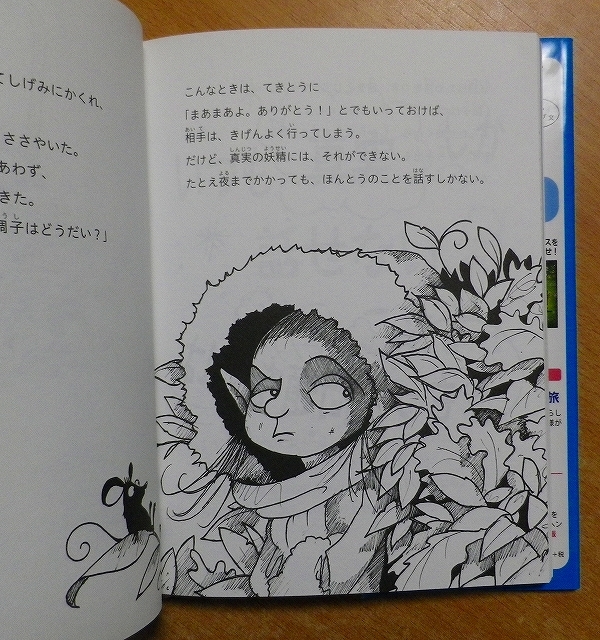 てしげみにかくれ、
ささやいた。
あわず、
きた。
調子はどうだい？」
こんなときは、てきとうに
「まあまあよ。ありがとう！」とでもいっておけば、
相手は、きげんよく行ってしまう。
だけど、真実の妖精には、それができない。
たとえ夜までかかっても、ほんとうのことを話すしかない。
スを
せ！
旅
らし
様が
を
ヘン